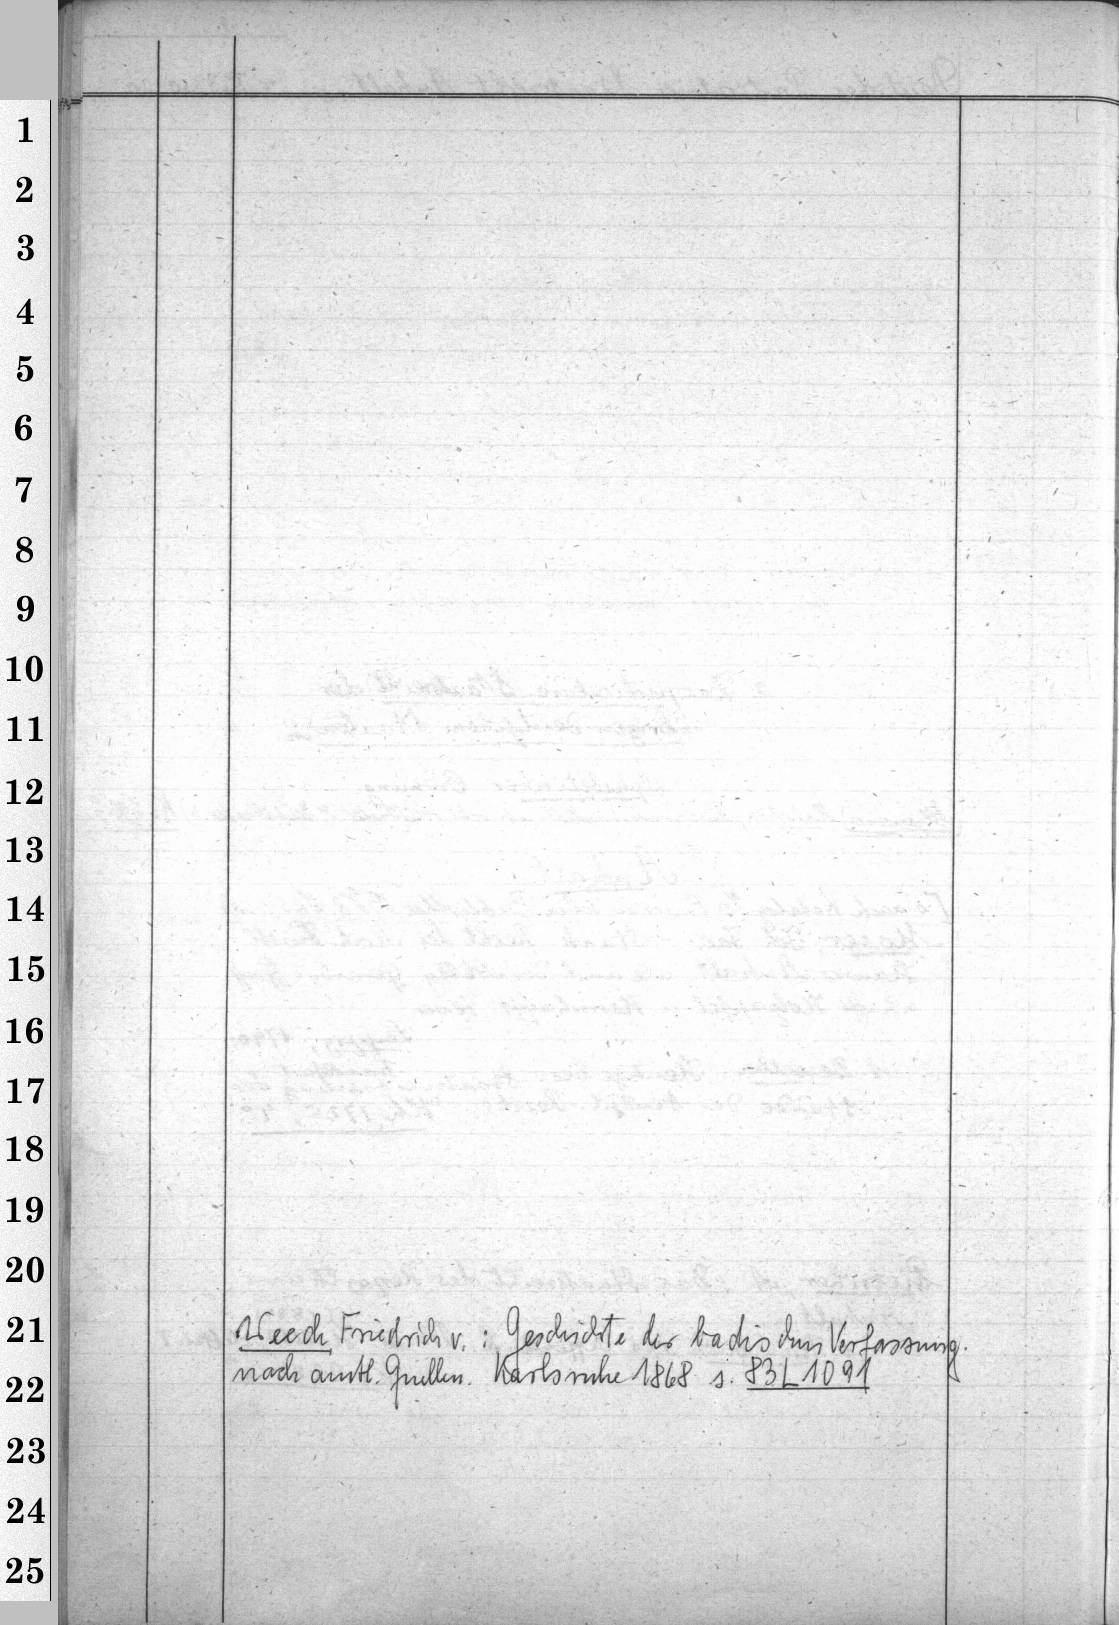 1
2
3
4
5
6
7
8
9
10
11
12
13
14
15
16
17
18
19
20
21
22
23
24
25
Weech, Friedrich v. : Geschichte der badischen Verfassung.
nach amtl. Quellen. Karlsruhe 1868 s. 83L1091